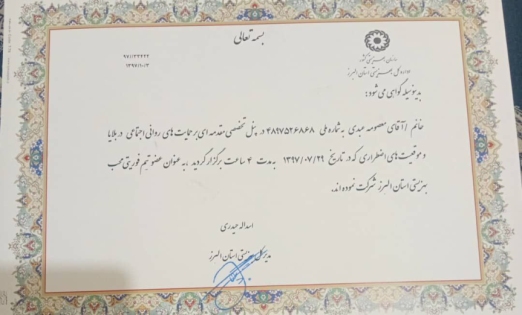 بسمه تعالی
۹۷۱/۳۳۴۴۳
۱۳۹۷/۱۰/۳
سازمان بهزیستی کشور
اداره کل بهزیستی استان البرز
بدینوسیله گواهی می شود:
خانم / آقای معصومه عبدی به شماره ملی ۴۸۹۷۵۲۶۸۶۸ در پنل تخصصی مقدمه ای بر حمایت های روانی اجتماعی در بلایا
و موقعیت های اضطراری که در تاریخ ۱۳۹۷/۰۷/۲۹ به مدت ۴ ساعت برگزار گردید به عنوان عضو تیم فوریتی محب
بهزیستی استان البرز شرکت نموده اند.
اسداله حیدری
مدیر کل بهزیستی استان البرز